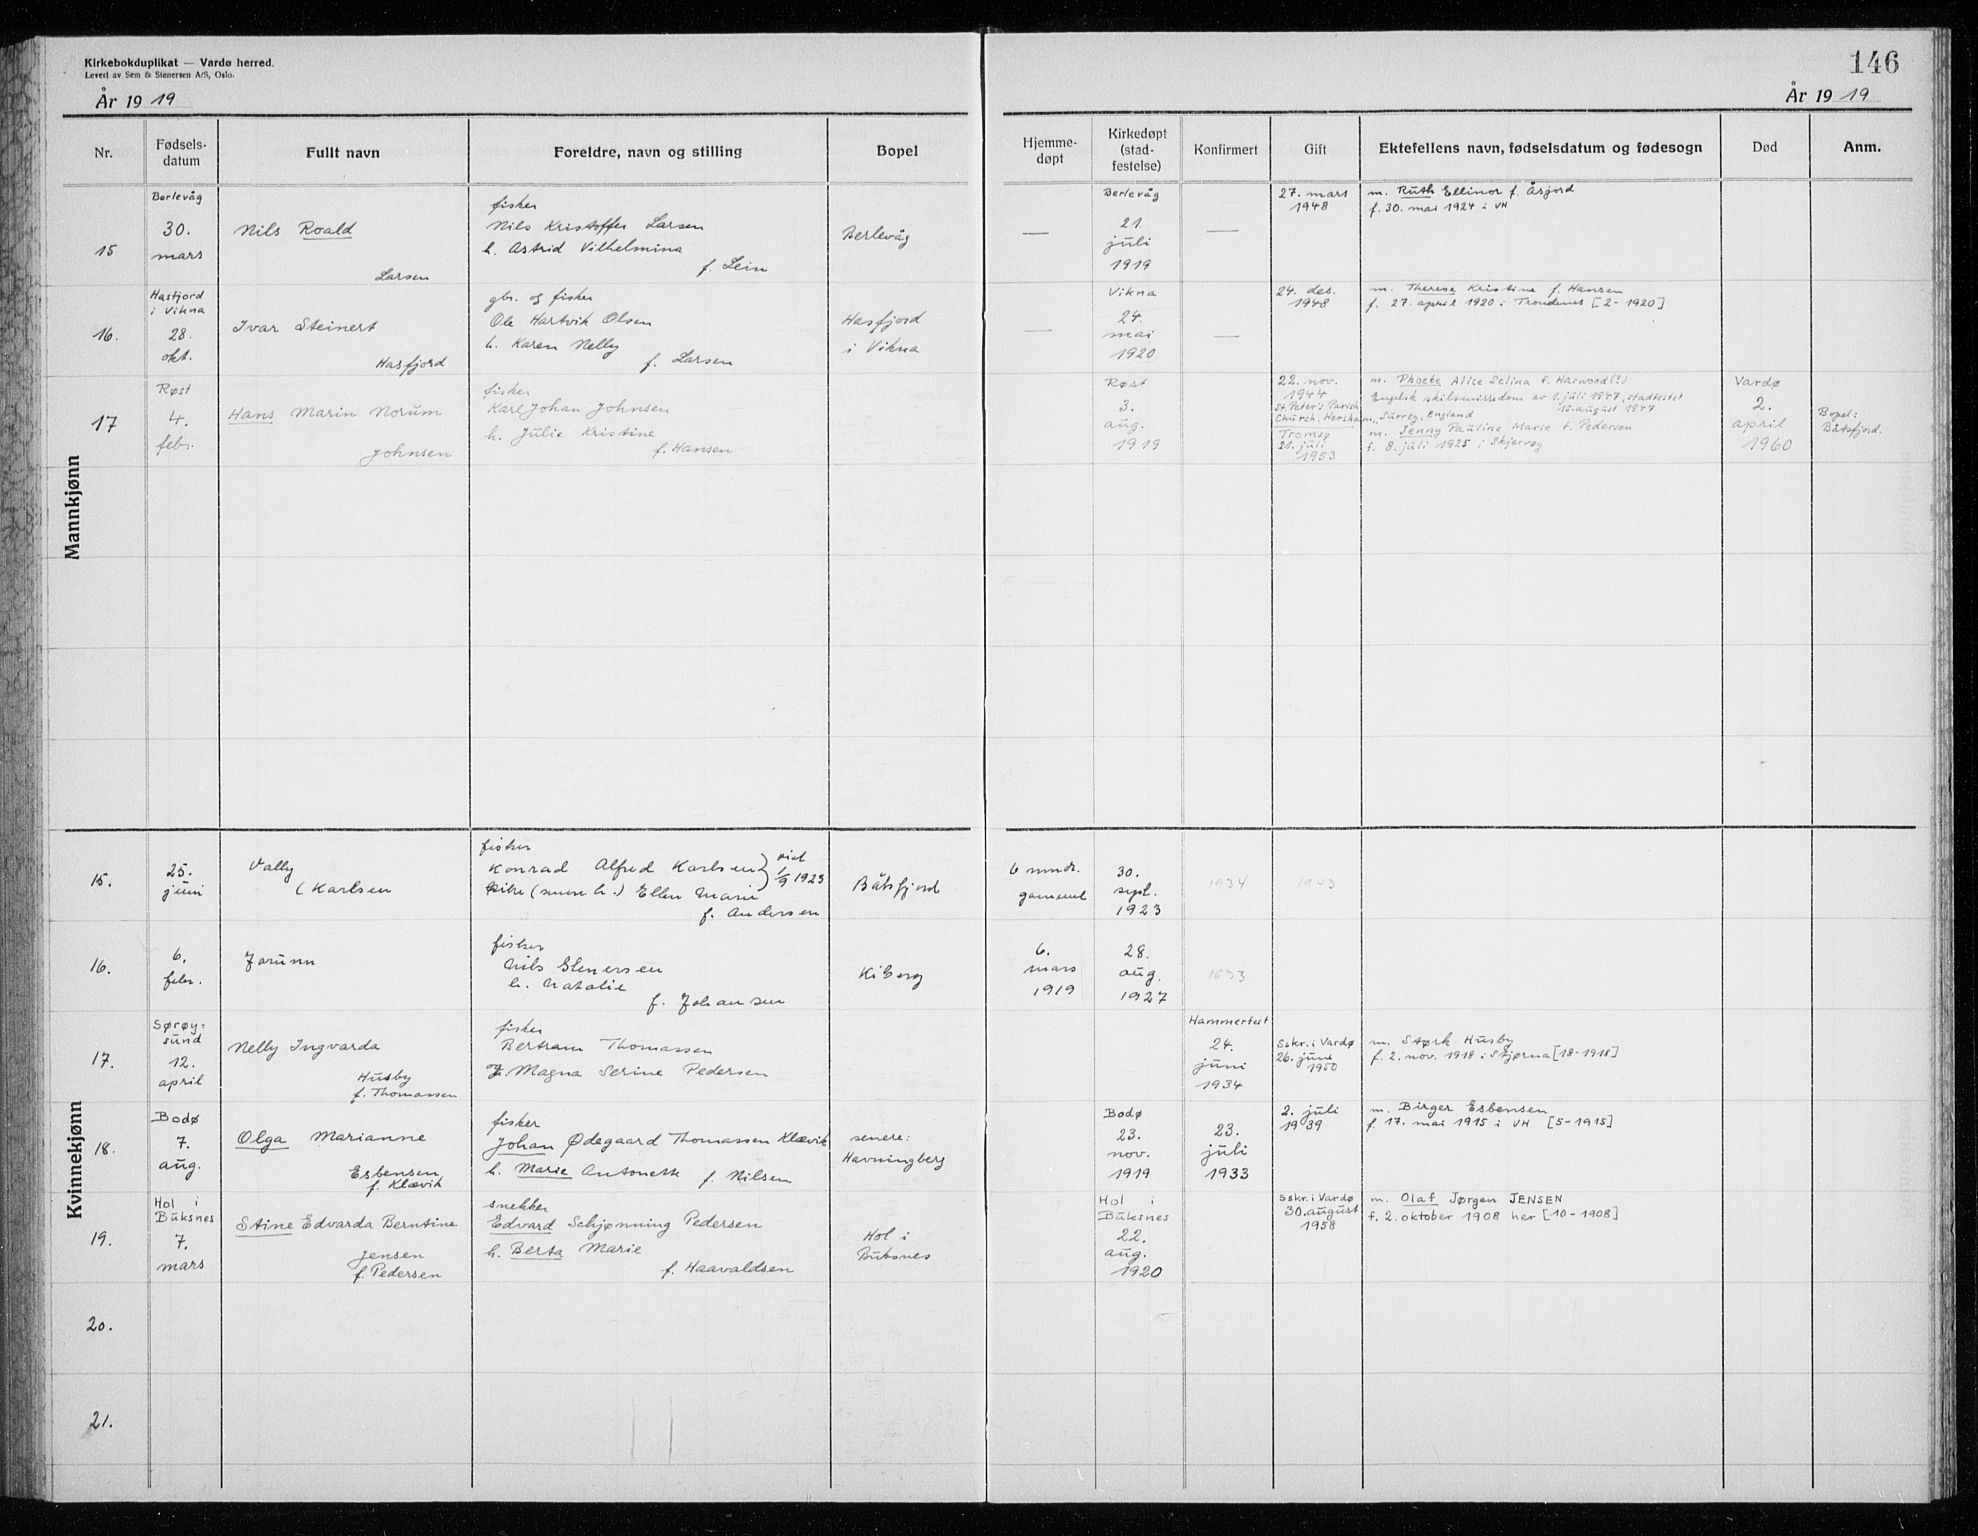 Kirkebokduplikat — Vardø herred.
Levert av Sem & Stenersen A/S, Oslo.
146
År 1919
År 1919
Nr.
Fødselsdatum
Fullt navn
Foreldre, navn og stilling
Bopel
Hjemmedøpt
Kirkedøpt (stadfestelse)
Konfirmert
Gift
Ektefellens navn, fødselsdatum og fødesogn
Død
Anm.
Mannkjønn
15
Berlevåg
30.
mars
Nils Roald
Larsen
fisker
Nils Kristoffer Larsen
h. Astrid Vilhelmina
f. Lein
Berlevåg
—
Berlevåg
21
juli
1919
—
27. mars
1948
m. Ruth Ellinor f. Åsjord
f. 30. mai 1924 i VH
16.
Hasfjord
i Vikna
28.
okt.
Ivar Steinert
Hasfjord
gbr. og fisker
Ole Hartvik Olsen
h. Karen Nelly
f. Larsen
Hasfjord
i Vikna
—
Vikna
24.
mai
1920
—
24. des.
1948
m. Therese Kristine f. Hansen
f. 27. april 1920 i Trondenes [2-1920]
17
Røst
4.
febr.
Hans Marin Norum
Johnsen
fisker
Karl Johan Johnsen
h. Julie Kristine
f. Hansen
Røst
3.
aug.
1919
22. nov.
1944
St. Peter's Parish
Church, Hersham, Surrey, England
m. Phoebe Alice Selina f. Harwood (?)
Engelsk skilsmissedom av 1. juli 1947, stadfestet
15. august 1947
Tromsø
21. juli
1953
m. Jenny Pauline Marie f. Pedersen
f. 8. juli 1925 i Skjervøy
Vardø
2.
april
1960
Bopel:
Båtsfjord.
Kvinnekjønn
15.
25.
juni
Vally
(Karlsen
fisker
Konrad Alfred Karlsen
(senere h.) Ellen Marie
f. Andersen
viet
1/9 1923
Båtsfjord
6 mndr.
gammel
30.
sept.
1923
1934
1943
16.
6.
febr.
Jorunn
fisker
Nils Stenersen
h. Natalie
f. Johansen
Kiberg
6.
mars
1919
28.
aug.
1927
1933
17.
Sørøysund
12.
april
Nelly Ingvarda
Husby
f. Thomassen
fisker
Bertram Thomassen
og Magna Serine Pedersen
Hammerfest
24.
juni
1934
Sskr. i Vardø
26. juni
1950
m. Størk Husby
f. 2. nov. 1918 i Stjørna [18-1918]
18.
Bodø
7.
aug.
Olga Marianne
Esbensen
f. Klævik
fisker
Johan Ødegaard Thomassen Klævik
h. Marie Antonette f. Nilsen
senere:
Havningberg
Bodø
23.
nov.
1919
23.
juli
1933
2. juli
1939
m. Birger Esbensen
f. 17. mai 1915 i VH [5-1915]
19.
Hol i
Buksnes
7.
mars
Stine Edvarda Berntine
Jensen
f. Pedersen
snekker
Edvard Schjønning Pedersen
h. Berta Marie
f. Haavaldsen
Hol i
Buksnes
Hol i
Buksnes
22.
aug.
1920
Sskr. i Vardø
30. august
1958
m. Olaf Jørgen JENSEN
f. 2. oktober 1908 her [10-1908]
20.
21.